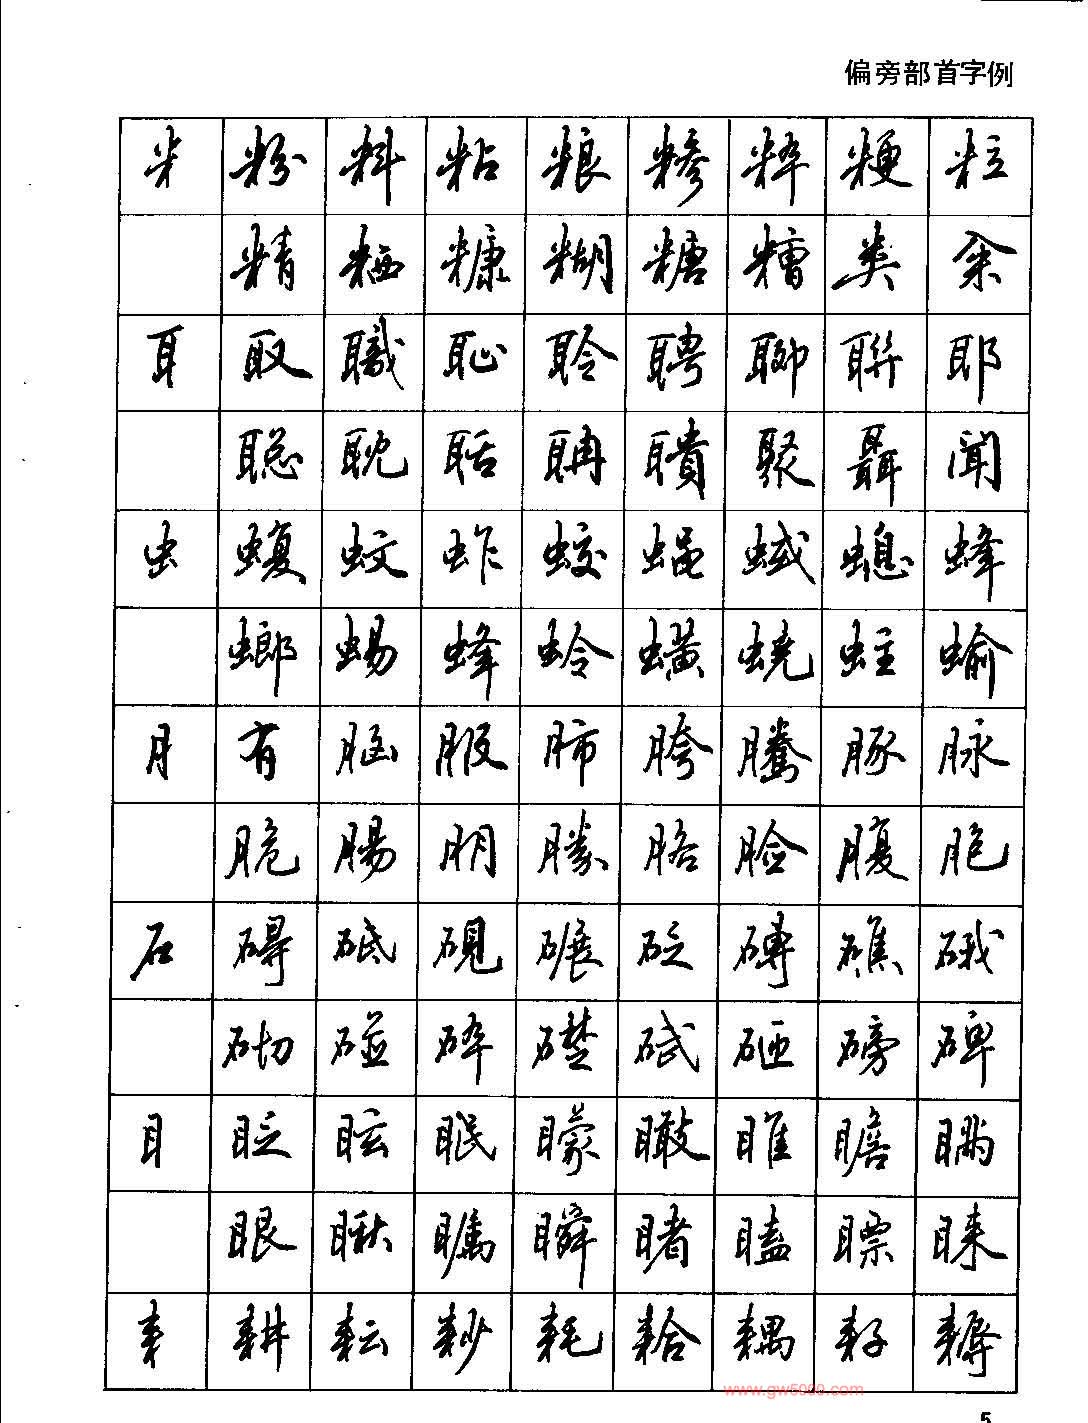 偏旁部首字例
米 粉 料 粘 粮 糁 粹 粳 粒
精 粞 糠 糊 糖 糟 类 籴
耳 取 职 耻 聆 聘 聊 联 耶
聪 耽 聒 聃 聩 聚 聂 闻
虫 蝮 蚊 蚱 蛟 蝇 蜮 螅
螂 蜴 蜂 蛉 蟥 蛲 蛀 蝓
月 有 脑 服 肺 胯 腾 豚 脉
脆 肠 朋 胳 脸 腹 胞
石 碍 砥 砚 碾 砭 礁 硪
砌 碰 碎 础 砸 磅 碑
目 眨 眩 眠 矇 瞰 睢 瞻 瞒
眼 瞅 瞩 瞬 睹 瞌 瞟 睐
耒 耕 耘 耖 耗 耠 耦 籽 耨
www.gw5000.com
5